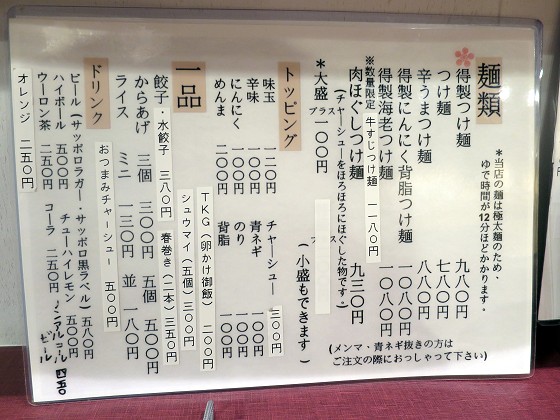 麺類
*当店の麺は極太麺のため、
ゆで時間が12分ほどかかります。
得製つけ麺 九八〇円
つけ麺 七八〇円
辛うまつけ麺 八八〇円
得製にんにく背脂つけ麺 一〇八〇円
得製海老つけ麺 一〇八〇円
※数量限定 牛すじつけ麺 一一八〇円
肉ほぐしつけ麺 九三〇円
(チャーシューをほろほろにほぐした物です。)
*大盛 プラス一〇〇円
(小盛もできます)
(メンマ・青ネギ抜きの方は
ご注文の際におっしゃって下さい)
トッピング
味玉 一二〇円 チャーシュー 三〇〇円
辛味 一〇〇円 青ネギ 一〇〇円
にんにく 一〇〇円 のり 一〇〇円
めんま 二〇〇円 背脂 一〇〇円
一品
TKG(卵かけ御飯) 二〇〇円
シュウマイ(五個) 三〇〇円
餃子・水餃子 三八〇円 春巻き(二本) 三五〇円
からあげ 三個 三〇〇円 五個 五〇〇円
ライス ミニ 一三〇円 並 一八〇円
おつまみチャーシュー 五〇〇円
ドリンク
ビール(サッポロラガー・サッポロ黒ラベル) 五八〇円
ハイボール 五〇〇円 チューハイレモン 五〇〇円
ウーロン茶 二五〇円 コーラ 二五〇円
オレンジ 二五〇円
ノンアルコールビール 四五〇